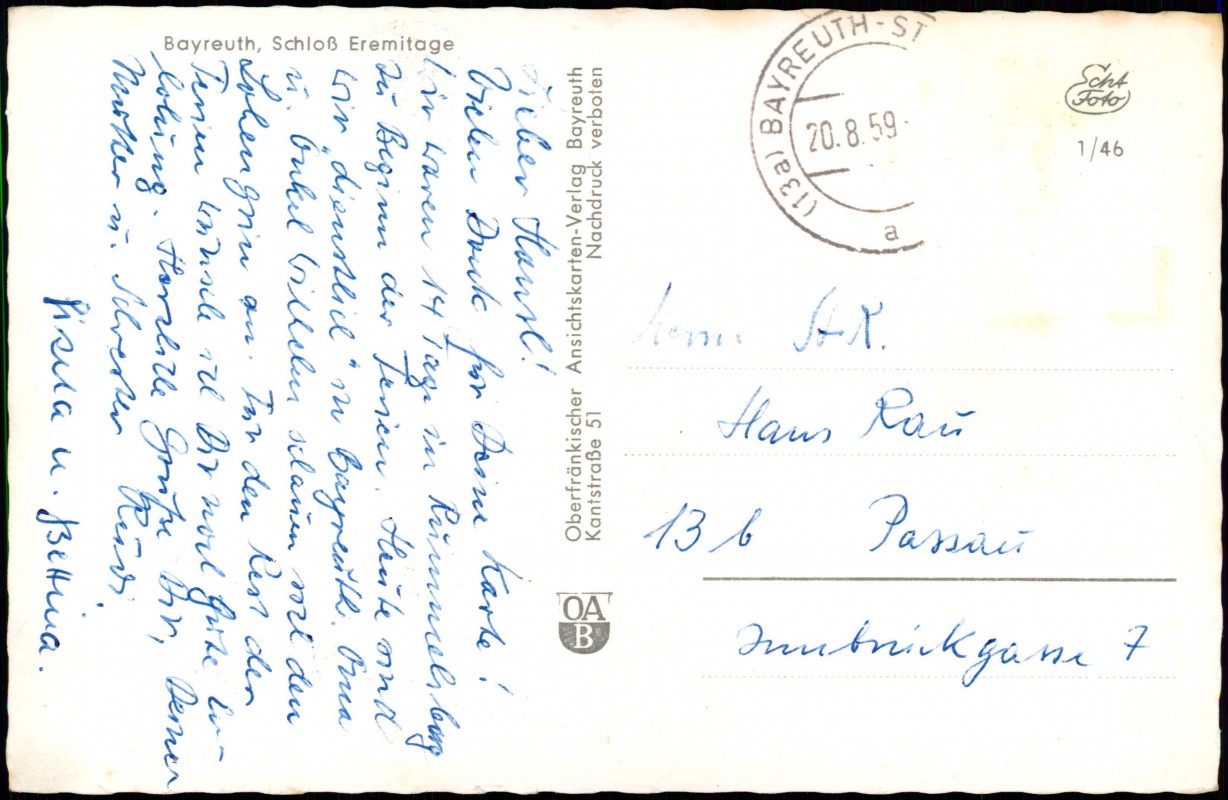 Bayreuth, Schloß Eremitage
Lieber Hansl!
Vielen Dank für Deine Karte!
Wir waren 14 Tage in Rummelsberg
zu Beginn der Ferien. Heute sind
wir „dienstlich" in Bayreuth. Oma
u. Onkel schauen sich den
Lohengrin an. Für den Rest der
Ferien wünsche ich Dir noch gute Er-
holung. Herzliche Grüße Dir, Deiner
Mutter u. Schwester
Gisela u. Bettina.
Oberfränkischer Ansichtskarten-Verlag Bayreuth
Kantstraße 51 Nachdruck verboten
OA
B
(13a) BAYREUTH-ST
20.8.59
a
Echt
Foto
1/46
Herrn St.R.
Hans Rau
13b Passau
Innbrückgasse 7